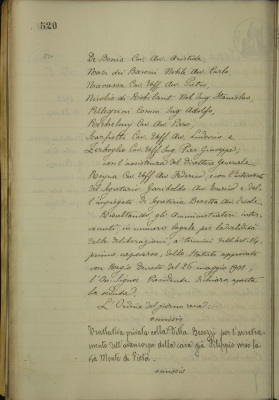 520
De Benia Cav. Av. Aristide,
Masi dei Baroni Nobile Av. Carlo,
Navassa Cav. Uff. Av. Pietro,
Nicolis di Robilant Nob. Ing. Stanislao,
Pellegrini Comm. Ing. Adolfo,
Cav. Av. Pino,
Scarfiotti Cav. Uff. Av. Ludovico e
Zerboglio Cav. Uff. Ing. Pier Giuseppe;
con l'assistenza del Direttore Generale
Reyna Cav. Uff. Av. Federico, e con l'intervento
del Segretario Garibaldo Av. e del-
l'impiegato di Segreteria Baretta Av. Ercole.
Risultando gli Amministratori inter-
venuti in numero legale per la validità
delle deliberazioni, a termini dell'art. 14,
primo capoverso, dello Statuto approvato
con Regio Decreto del 26 maggio 1901,
l'On. Signor Presidente dichiara aperta
la seduta.
L'Ordine del giorno reca:
omissis
Trattativa privata colla Ditta per l'arreda-
mento dell' della casa già Filippo verso la
via Monte di Pietà.
omissis